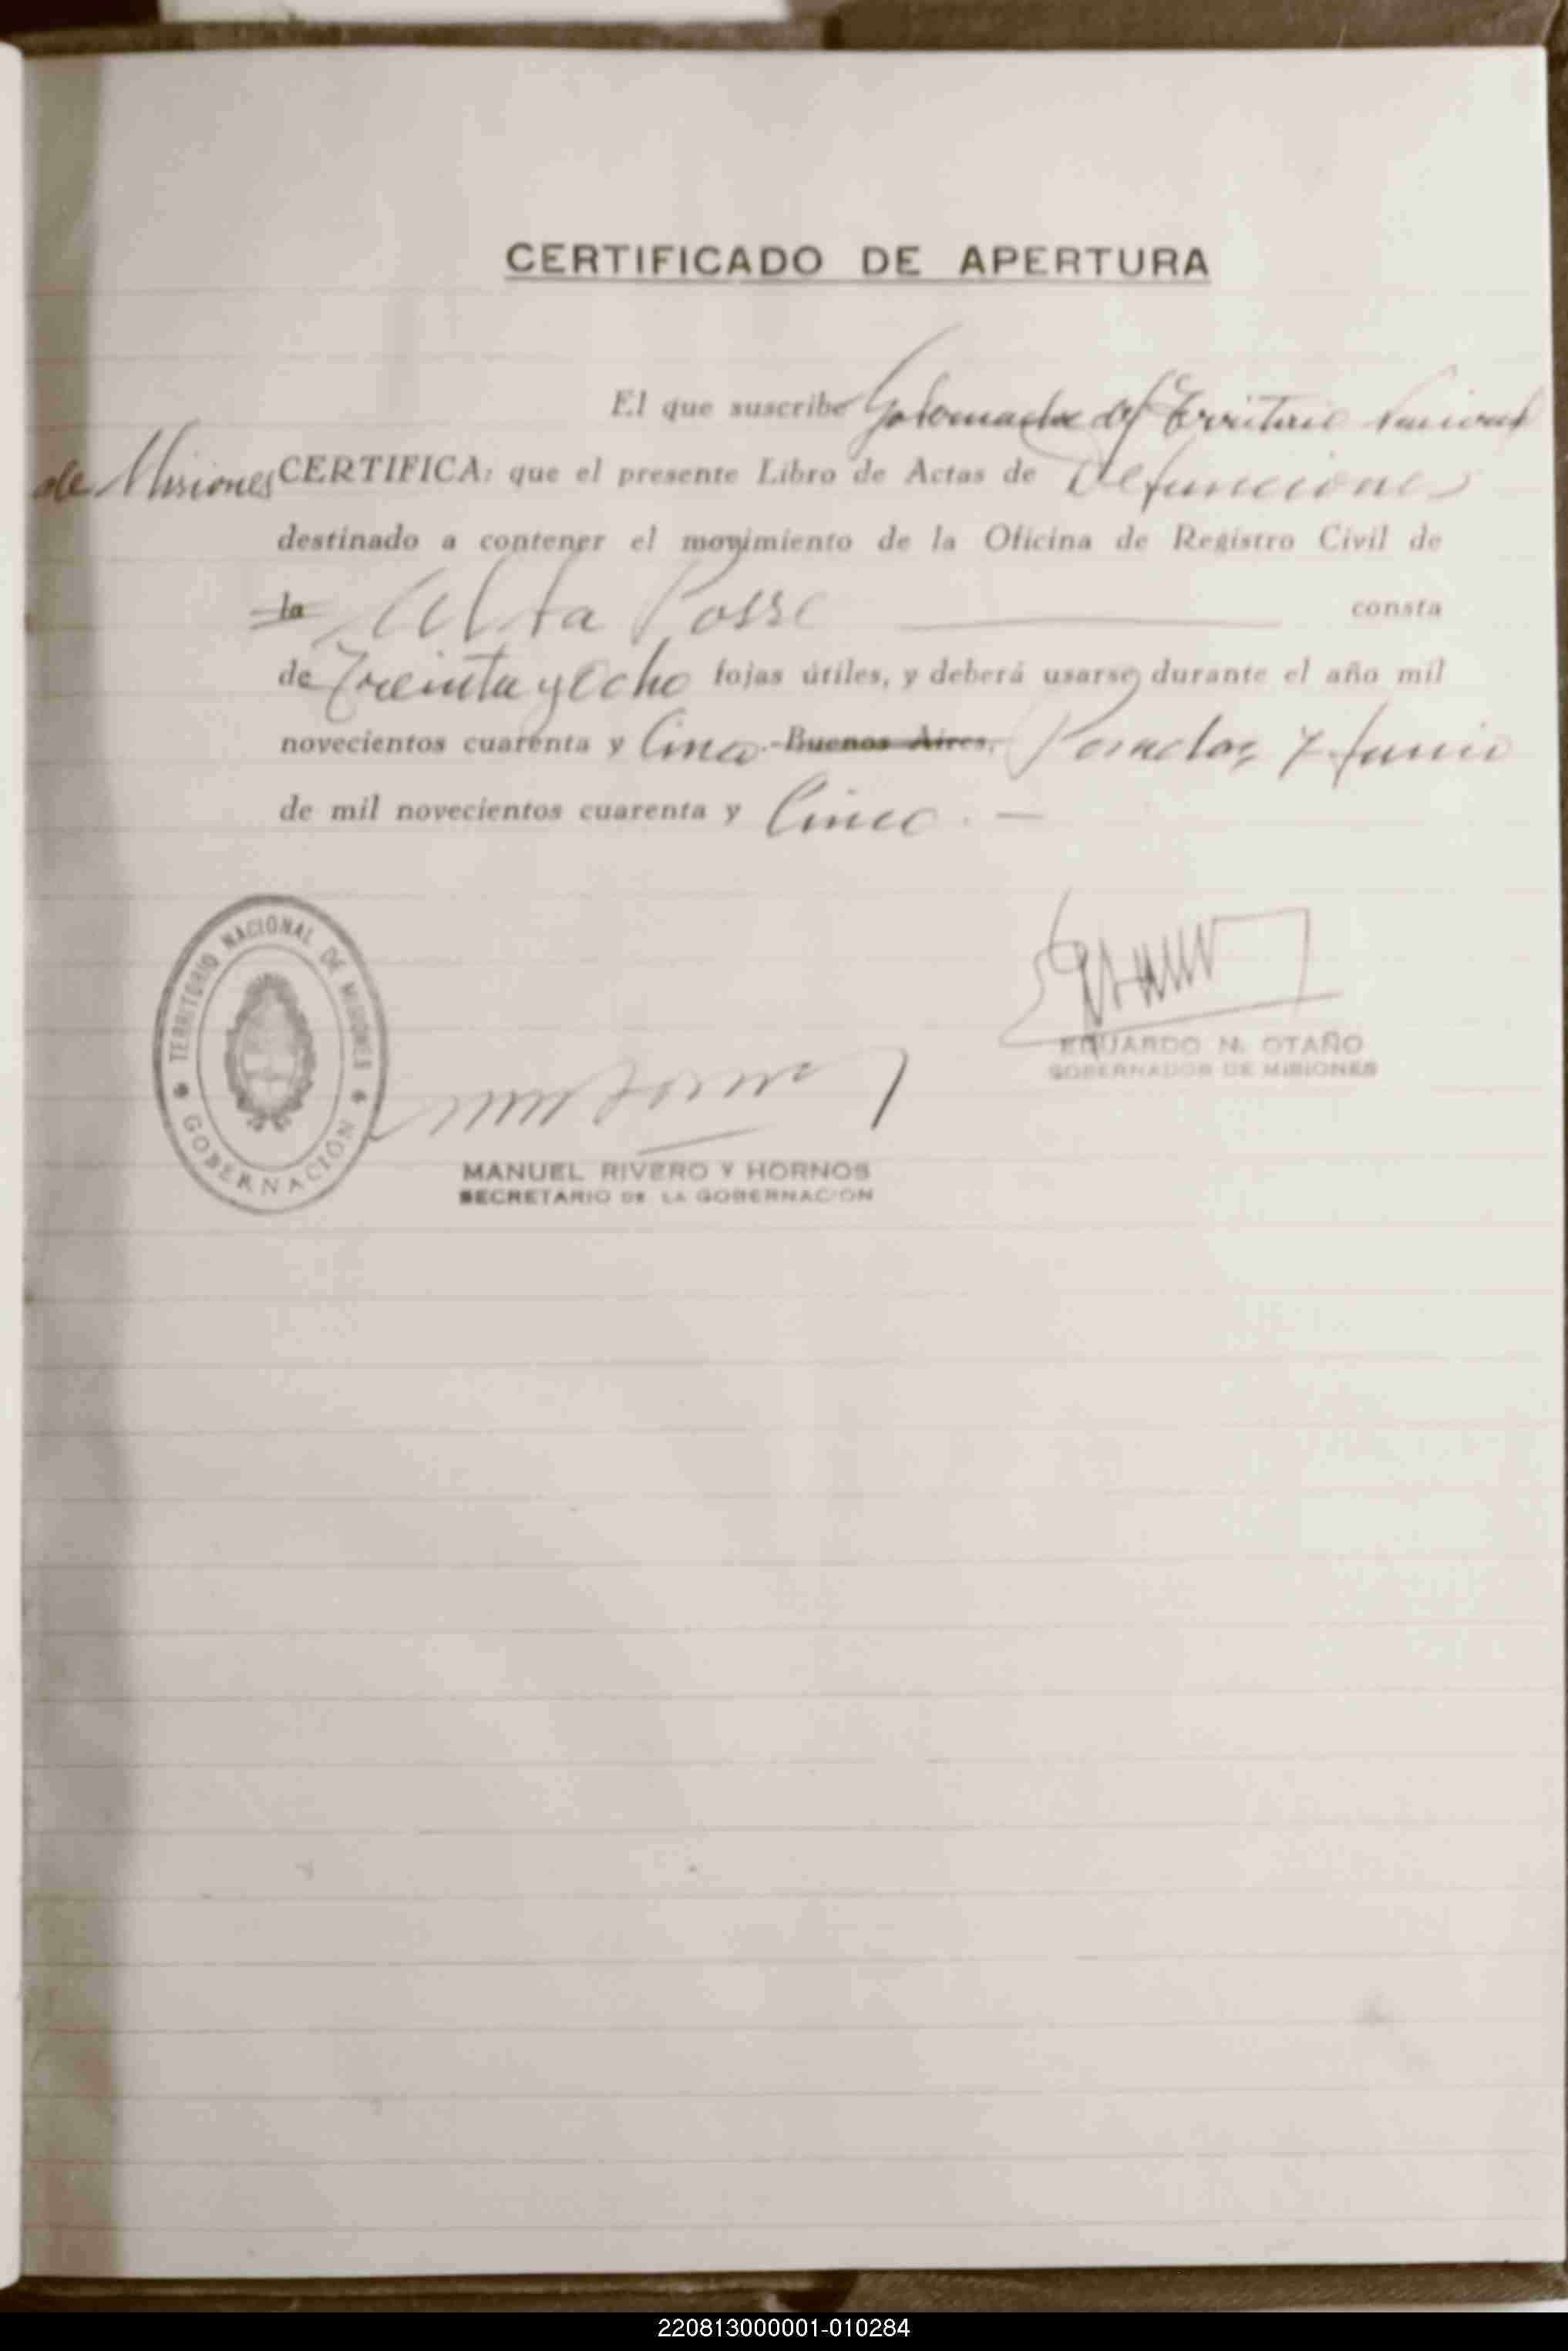 CERTIFICADO DE APERTURA
El que suscribe Gobernador del Territorio Nacional
de Misiones CERTIFICA: que el presente Libro de Actas de Defunciones
destinado a contener el movimiento de la Oficina de Registro Civil de
la Alba Posse consta
de Treinta y Ocho fojas útiles, y deberá usarse durante el año mil
novecientos cuarenta y Cinco.- Buenos Aires, Posadas, 7 Junio
de mil novecientos cuarenta y Cinco. —
TERRITORIO NACIONAL DE MISIONES
GOBERNACIÓN
EDUARDO N. OTAÑO
GOBERNADOR DE MISIONES
MANUEL RIVERO Y HORNOS
SECRETARIO DE LA GOBERNACION
220813000001-010284